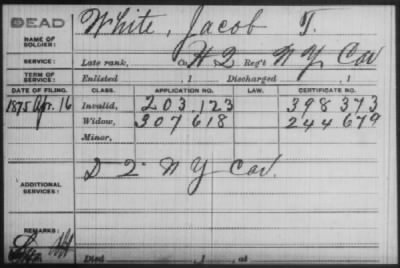 DEAD
NAME OF SOLDIER: White, Jacob T.
SERVICE: Late rank, Co. H 2 Reg't N Y Cav
TERM OF SERVICE: Enlisted , 1 Discharged , 1
DATE OF FILING. CLASS. APPLICATION NO. LAW. CERTIFICATE NO.
1875 Apr. 16 Invalid, 203.123 398373
Widow, 307618 244679
Minor,
ADDITIONAL SERVICES: D 2" N Y Cav.
REMARKS:
Died , 1 , at